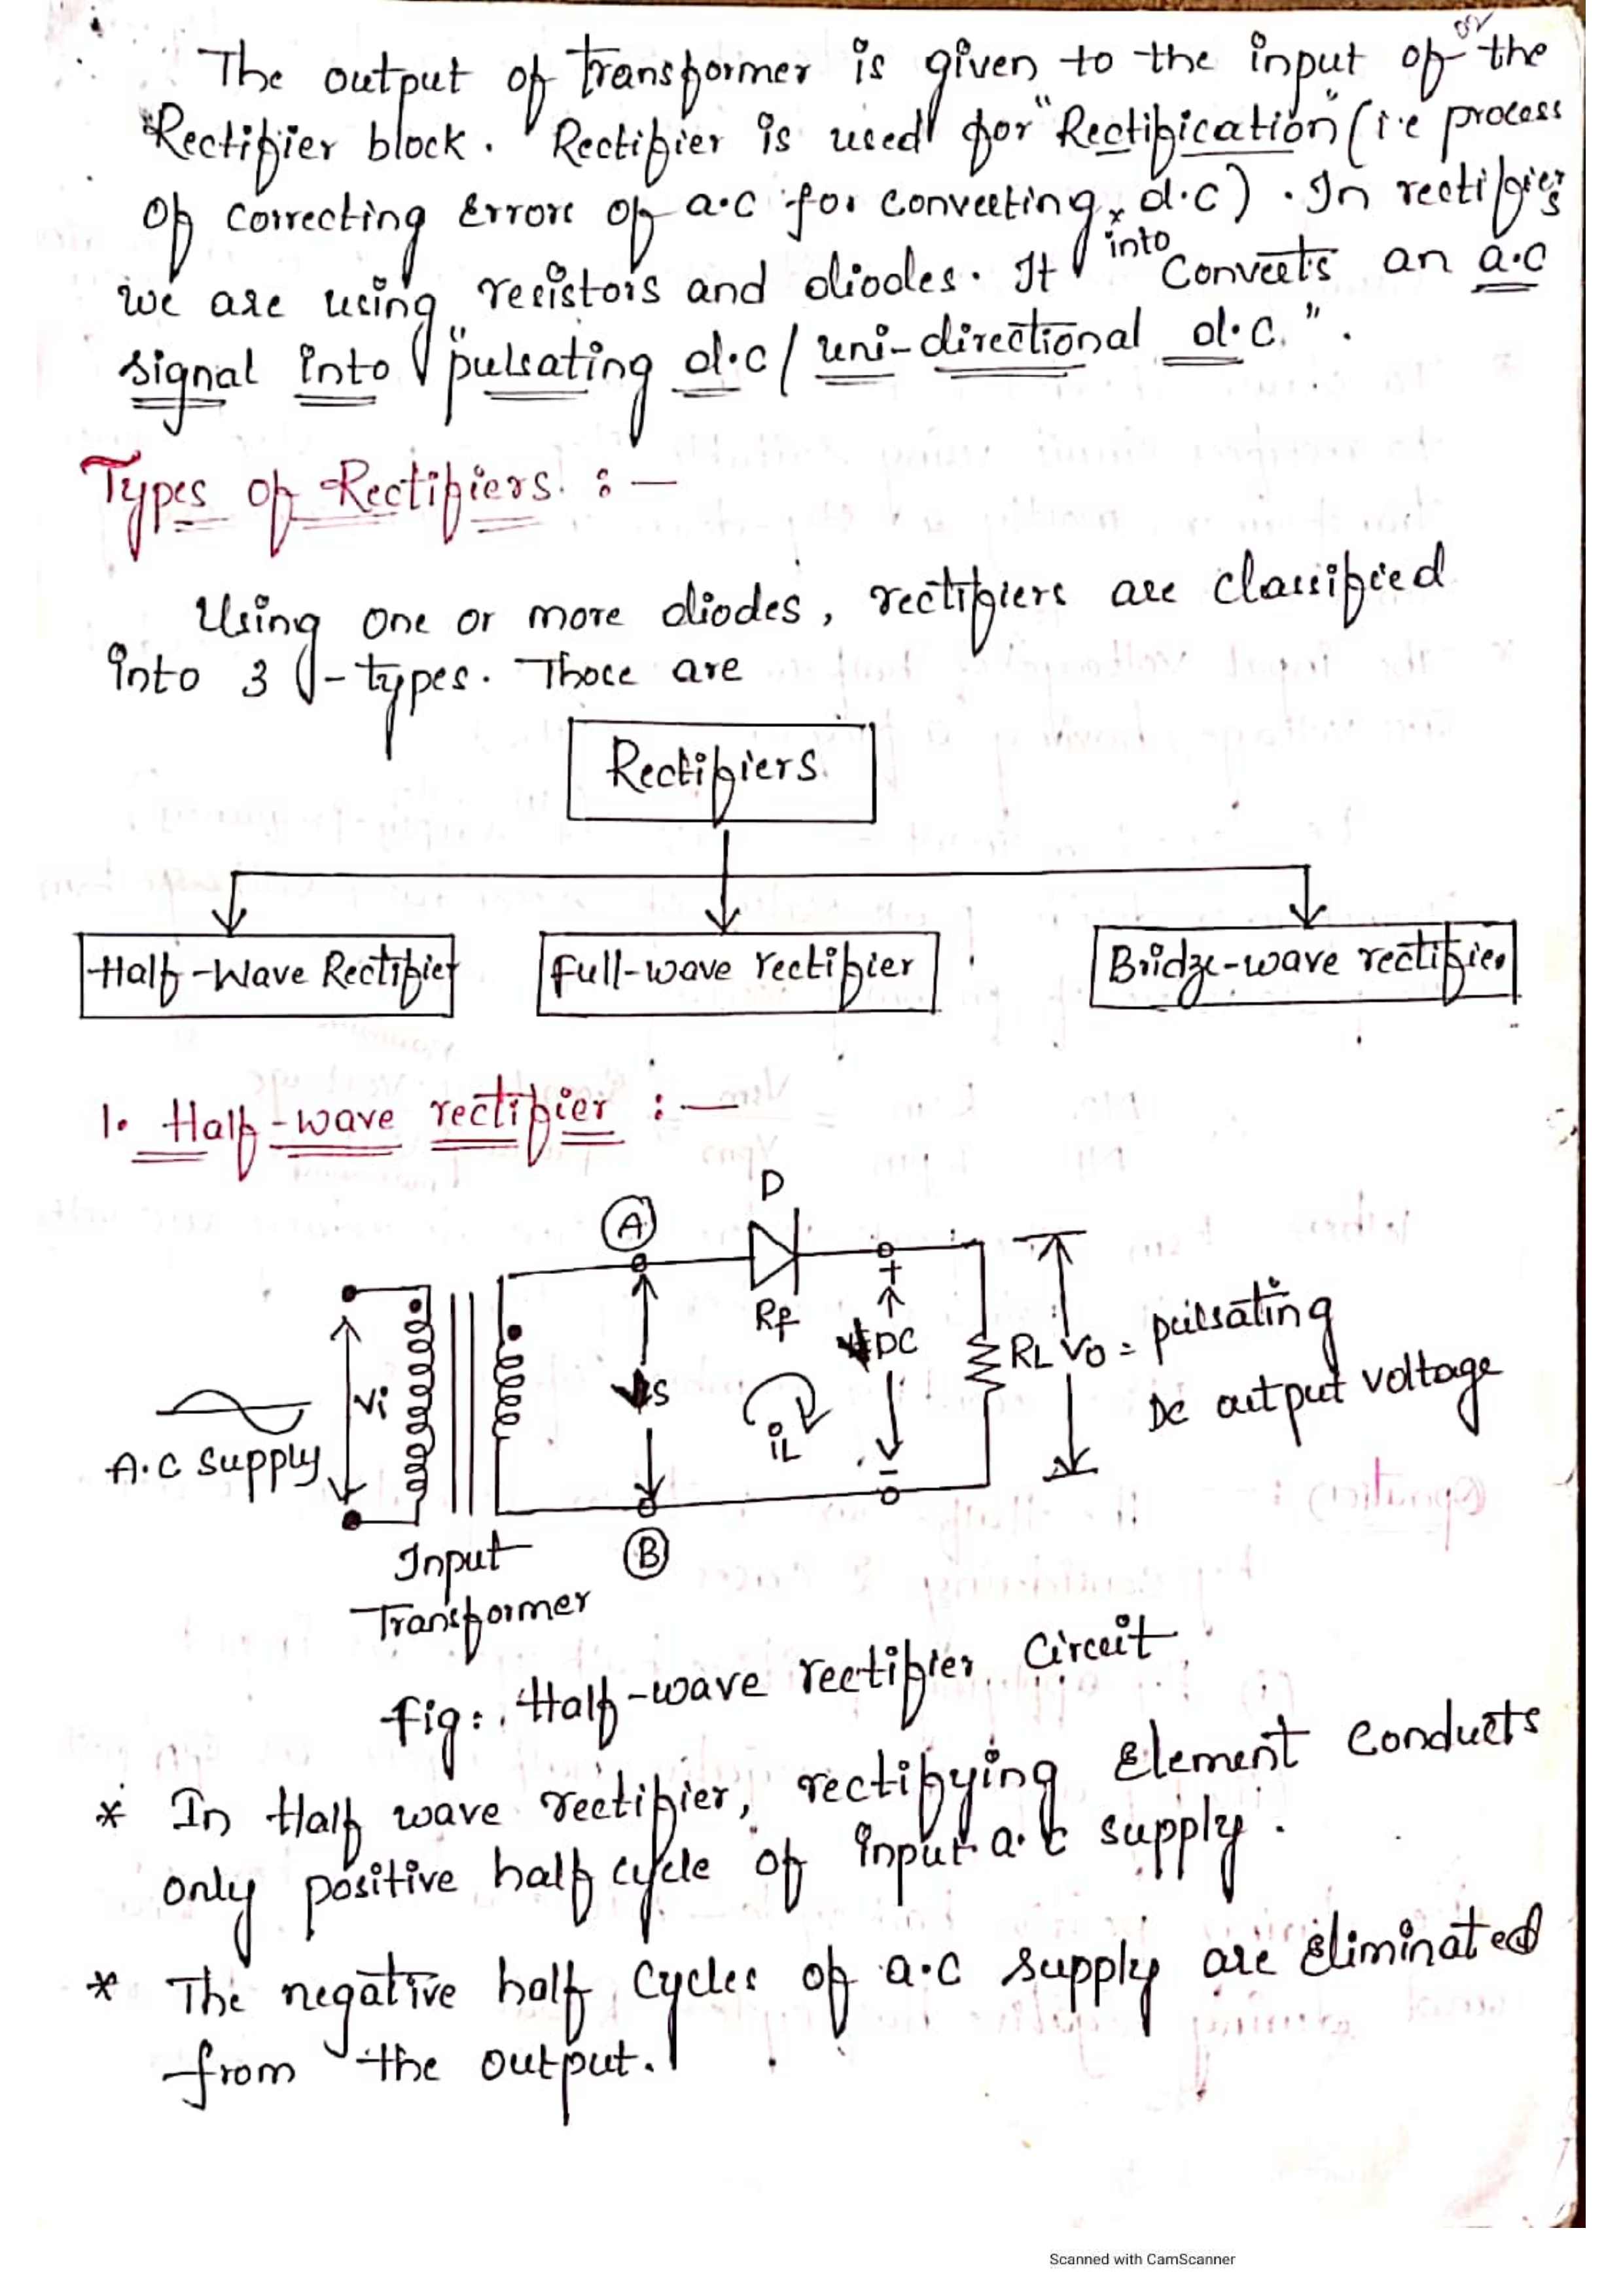 or
The output of transformer is given to the input of the
Rectifier block. Rectifier is used for "Rectification" (i.e process
of correcting Errors of a.c for converting x d.c). In rectifiers
into
we are using resistors and diodes. It converts an a.c
signal into "pulsating d.c / uni-directional d.c.".
Types of Rectifiers :-
Using one or more diodes, rectifiers are classified
into 3-types. Those are
Rectifiers
Half-Wave Rectifier
full-wave rectifier
Bridge-wave rectifier
1. Half-wave rectifier :-
D
A
Rf
Vi
VS
VDC
+
-
iL
RL
Vo = pulsating
DC output voltage
A.C supply
Input
Transformer
B
fig: Half-wave rectifier circuit
* In Half wave rectifier, rectifying Element conducts
only positive half cycle of input a.c supply.
* The negative half cycles of a.c supply are eliminated
from the output.
Scanned with CamScanner